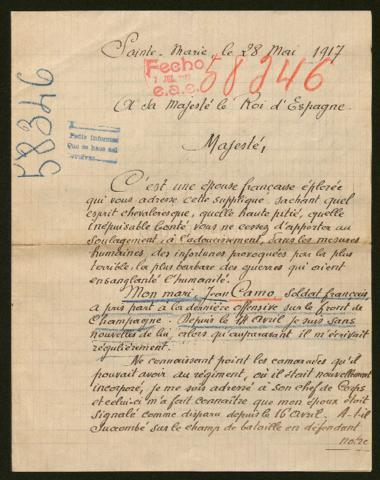 Sainte-Marie, le 28 Mai 1917
Fecho
JUL
e.a.c.
58346
58346
A Sa Majesté le Roi d'Espagne
Pedir informes
Que se haga
Majesté,
C'est une épouse française éplorée
qui vous adresse cette supplique, sachant quel
esprit chevaleresque, quelle haute pitié, quelle
inépuisable bonté vous ne cessez d'apporter au
soulagement, à l'adoucissement, dans les mesures
humaines, des infortunes provoquées par la plus
terrible, la plus barbare des guerres qui aient
ensanglanté l'humanité.
Mon mari, Jean Camo, soldat français,
a pris part à la dernière offensive sur le front de
Champagne. Depuis le 14 Avril je suis sans
nouvelles de lui, alors qu'auparavant il m'écrivait
régulièrement.
Ne connaissant point les camarades qu'il
pouvait avoir au régiment, où il était nouvellement
incorporé, je me suis adressé à son chef de Corps
et celui-ci m'a fait connaître que mon époux était
signalé comme disparu depuis le 16 Avril. A-t-il
succombé sur le champ de bataille en défendant
notre